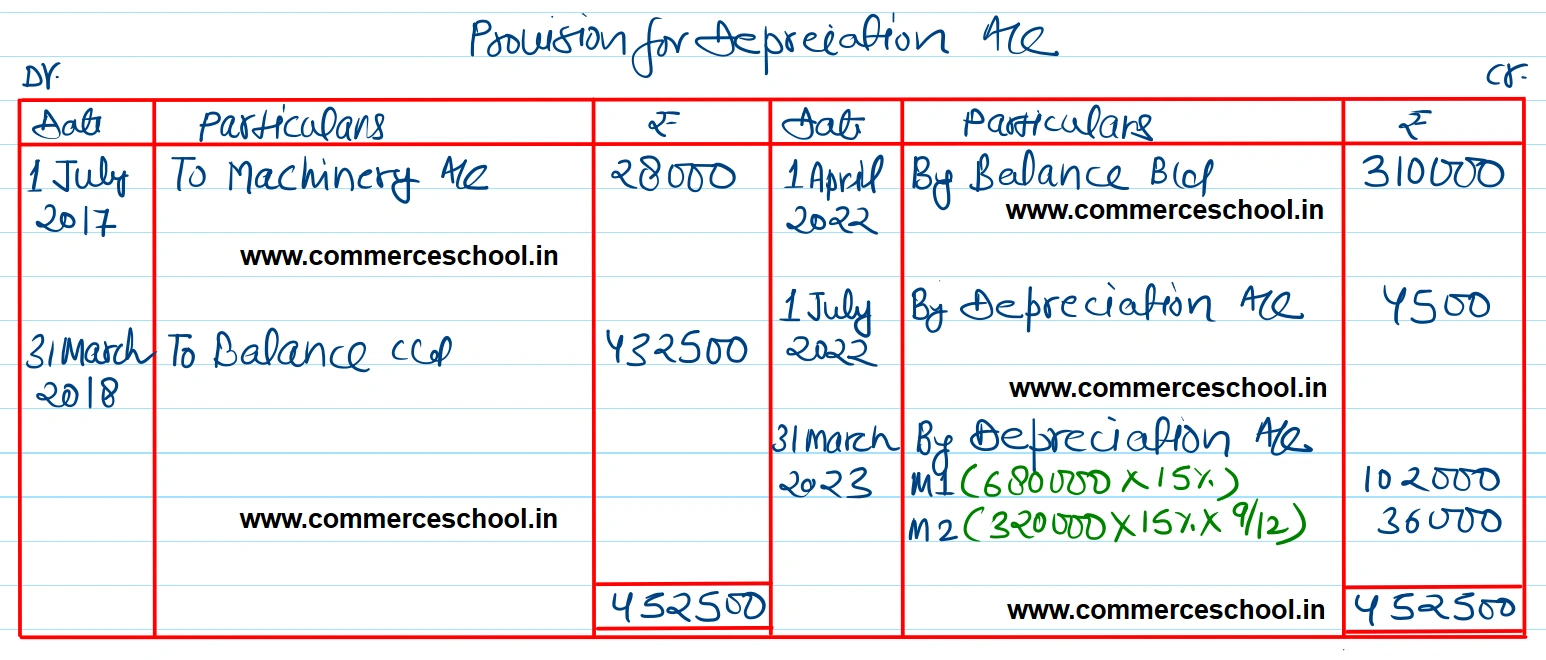 Provision for Depreciation A/c
Dr. Cr.
Date Particulars ₹ Date Particulars ₹
1 July To Machinery A/c 28000 1 April By Balance B/d 310000
2017 2022 www.commerceschool.in
www.commerceschool.in
1 July By Depreciation A/c 4500
31 March To Balance c/d 432500 2022
2018 www.commerceschool.in
31 March By Depreciation A/c
2023 M1 (680000 X 15%) 102000
www.commerceschool.in M2 (320000 X 15% X 9/12) 36000
452500 www.commerceschool.in 452500